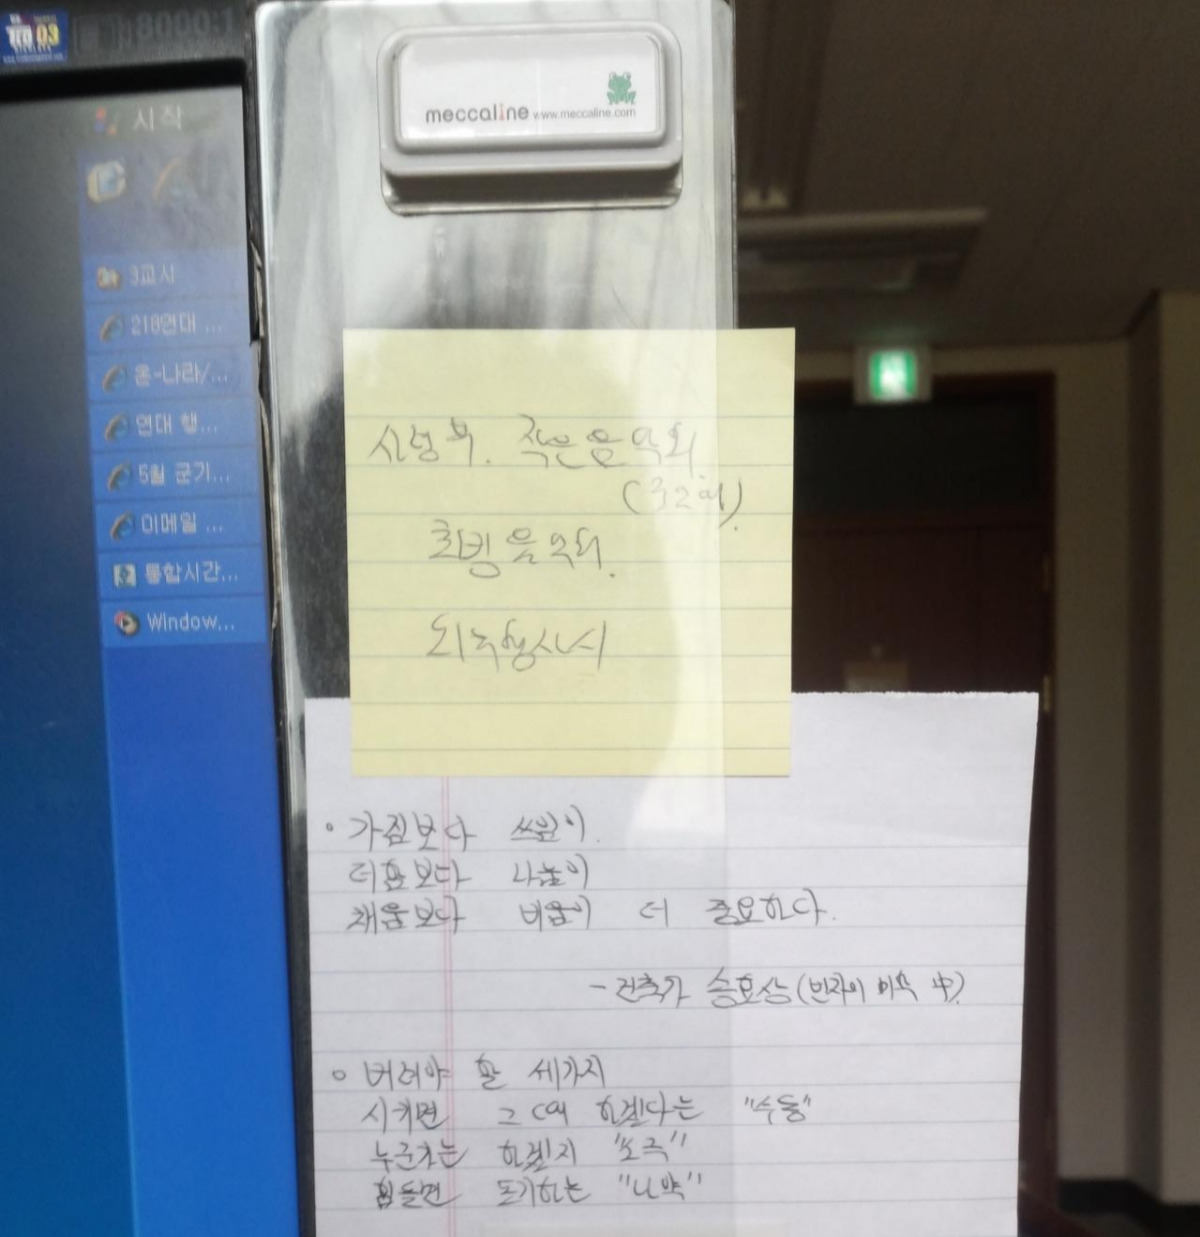 TCO 03
시작
3교시
218연대 ...
온-나라/...
연대 행...
5월 군기...
이메일 ...
통합시간...
Window...
meccaline www.meccaline.com
작은음악회.
(주2회).
희망음악회.
외부행사시
• 가짐보다 쓰임이.
더함보다 나눔이
채움보다 비움이 더 중요하다.
- 건축가 승효상 (빈자의 미학 中).
○ 버려야 할 세가지
시키면 그때 하겠다는 "수동"
누군가는 하겠지 "소극"
힘들면 포기하는 "나약"